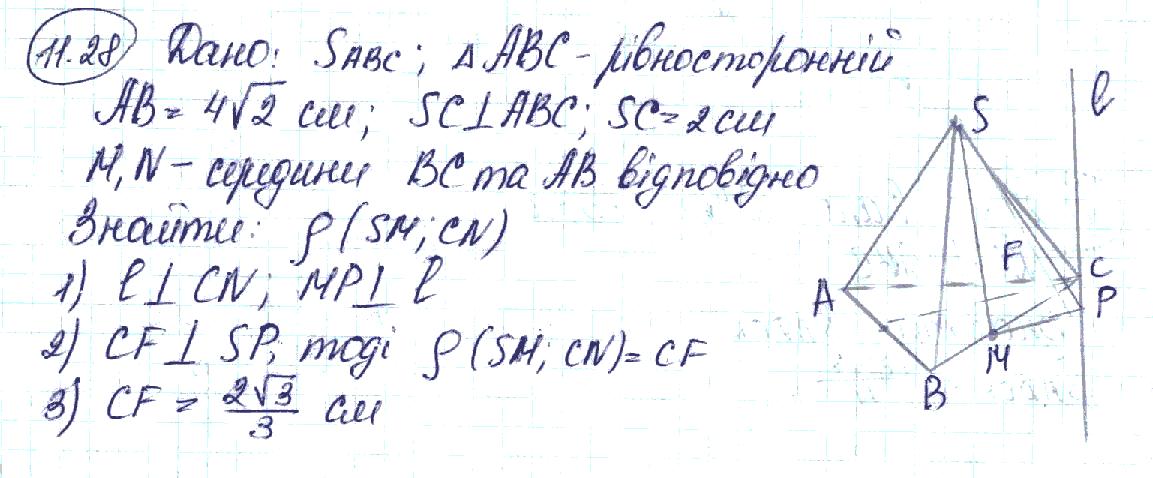 11.28 Дано: SABC; △ABC - рівносторонній
AB = 4√2 см; SC⊥ABC; SC = 2см
M,N - середини BC та AB відповідно
Знайти: ρ(SM;CN)
1) l⊥CN; MP⊥l
2) CF⊥SP; тоді ρ(SM; CN) = CF
3) CF = 2√3/3 см
S
l
A
F
C
P
M
B